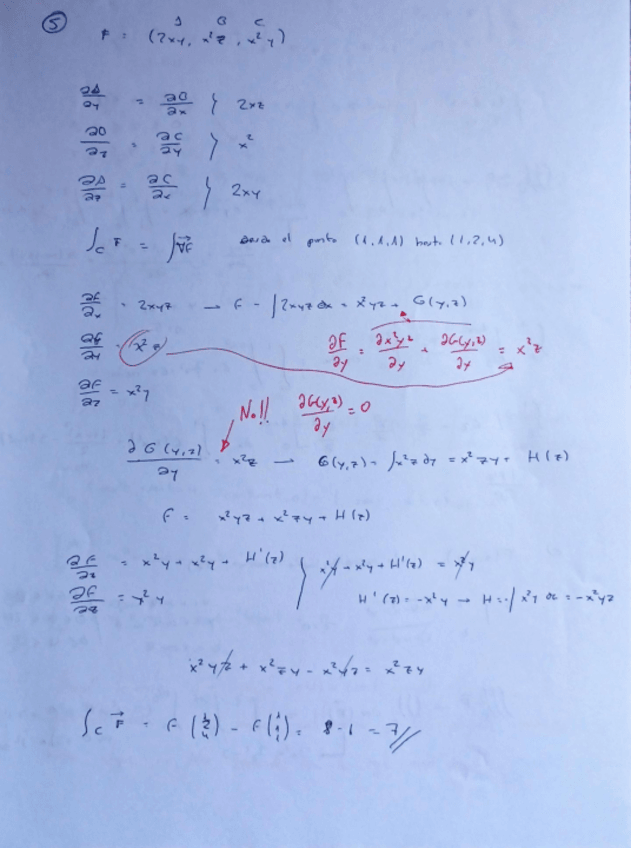 5
A B C
F = (2xy, x²z, x²y)
∂A/∂y = ∂B/∂x } 2xz
∂B/∂z = ∂C/∂y } x²
∂A/∂z = ∂C/∂x } 2xy
∫c F = ∫∇F desde el punto (1,1,1) hasta (1,2,4)
∂f/∂x = 2xyz → f = ∫2xyz dx = x²yz + G(y,z)
∂f/∂y = x²z ∂F/∂y = ∂x²yz/∂y + ∂G(y,z)/∂y = x²z
∂f/∂z = x²y
No!! ∂G(y,z)/∂y = 0
∂G(y,z)/∂y = x²z → G(y,z) = ∫x²z dy = x²zy + H(z)
f = x²yz + x²zy + H(z)
∂f/∂z = x²y + x²y + H'(z) } x²y + x²y + H'(z) = x²y
∂f/∂z = x²y H'(z) = -x²y → H = -∫x²y dz = -x²yz
x²yz + x²zy - x²yz = x²zy
∫c F = f(1 2 4) - f(1 1 1) = 8-1 = 7//